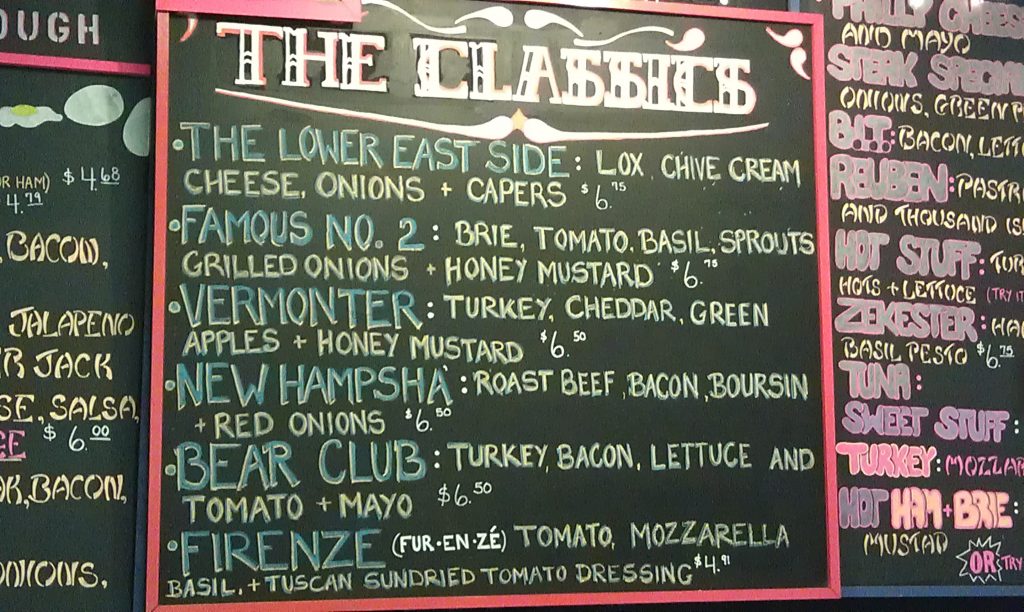 OUGH
OR HAM) $4.68
4.79
BACON,
JALAPENO
R JACK
SE, SALSA,
$6.00
BACON,
ONIONS,
THE CLASSICS
•THE LOWER EAST SIDE: LOX, CHIVE CREAM
CHEESE, ONIONS + CAPERS $6.75
•FAMOUS NO. 2: BRIE, TOMATO, BASIL, SPROUTS
GRILLED ONIONS + HONEY MUSTARD $6.75
•VERMONTER: TURKEY, CHEDDAR, GREEN
APPLES + HONEY MUSTARD $6.50
•NEW HAMPSHA: ROAST BEEF, BACON, BOURSIN
+ RED ONIONS $6.50
•BEAR CLUB: TURKEY, BACON, LETTUCE AND
TOMATO + MAYO $6.50
•FIRENZE (FUR·EN·ZÉ) TOMATO, MOZZARELLA
BASIL, + TUSCAN SUNDRIED TOMATO DRESSING $4.91
PHILLY CHEES
AND MAYO
STEAK SPECIAL
ONIONS, GREEN P
B.L.T.: BACON, LETT
REUBEN: PASTR
AND THOUSAND ISL
HOT STUFF: TUR
HOTS + LETTUCE (TRY IT
ZEKESTER: HA
BASIL PESTO $6.75
TUNA:
SWEET STUFF:
TURKEY: MOZZAR
HOT HAM + BRIE:
MUSTAD
OR TRY